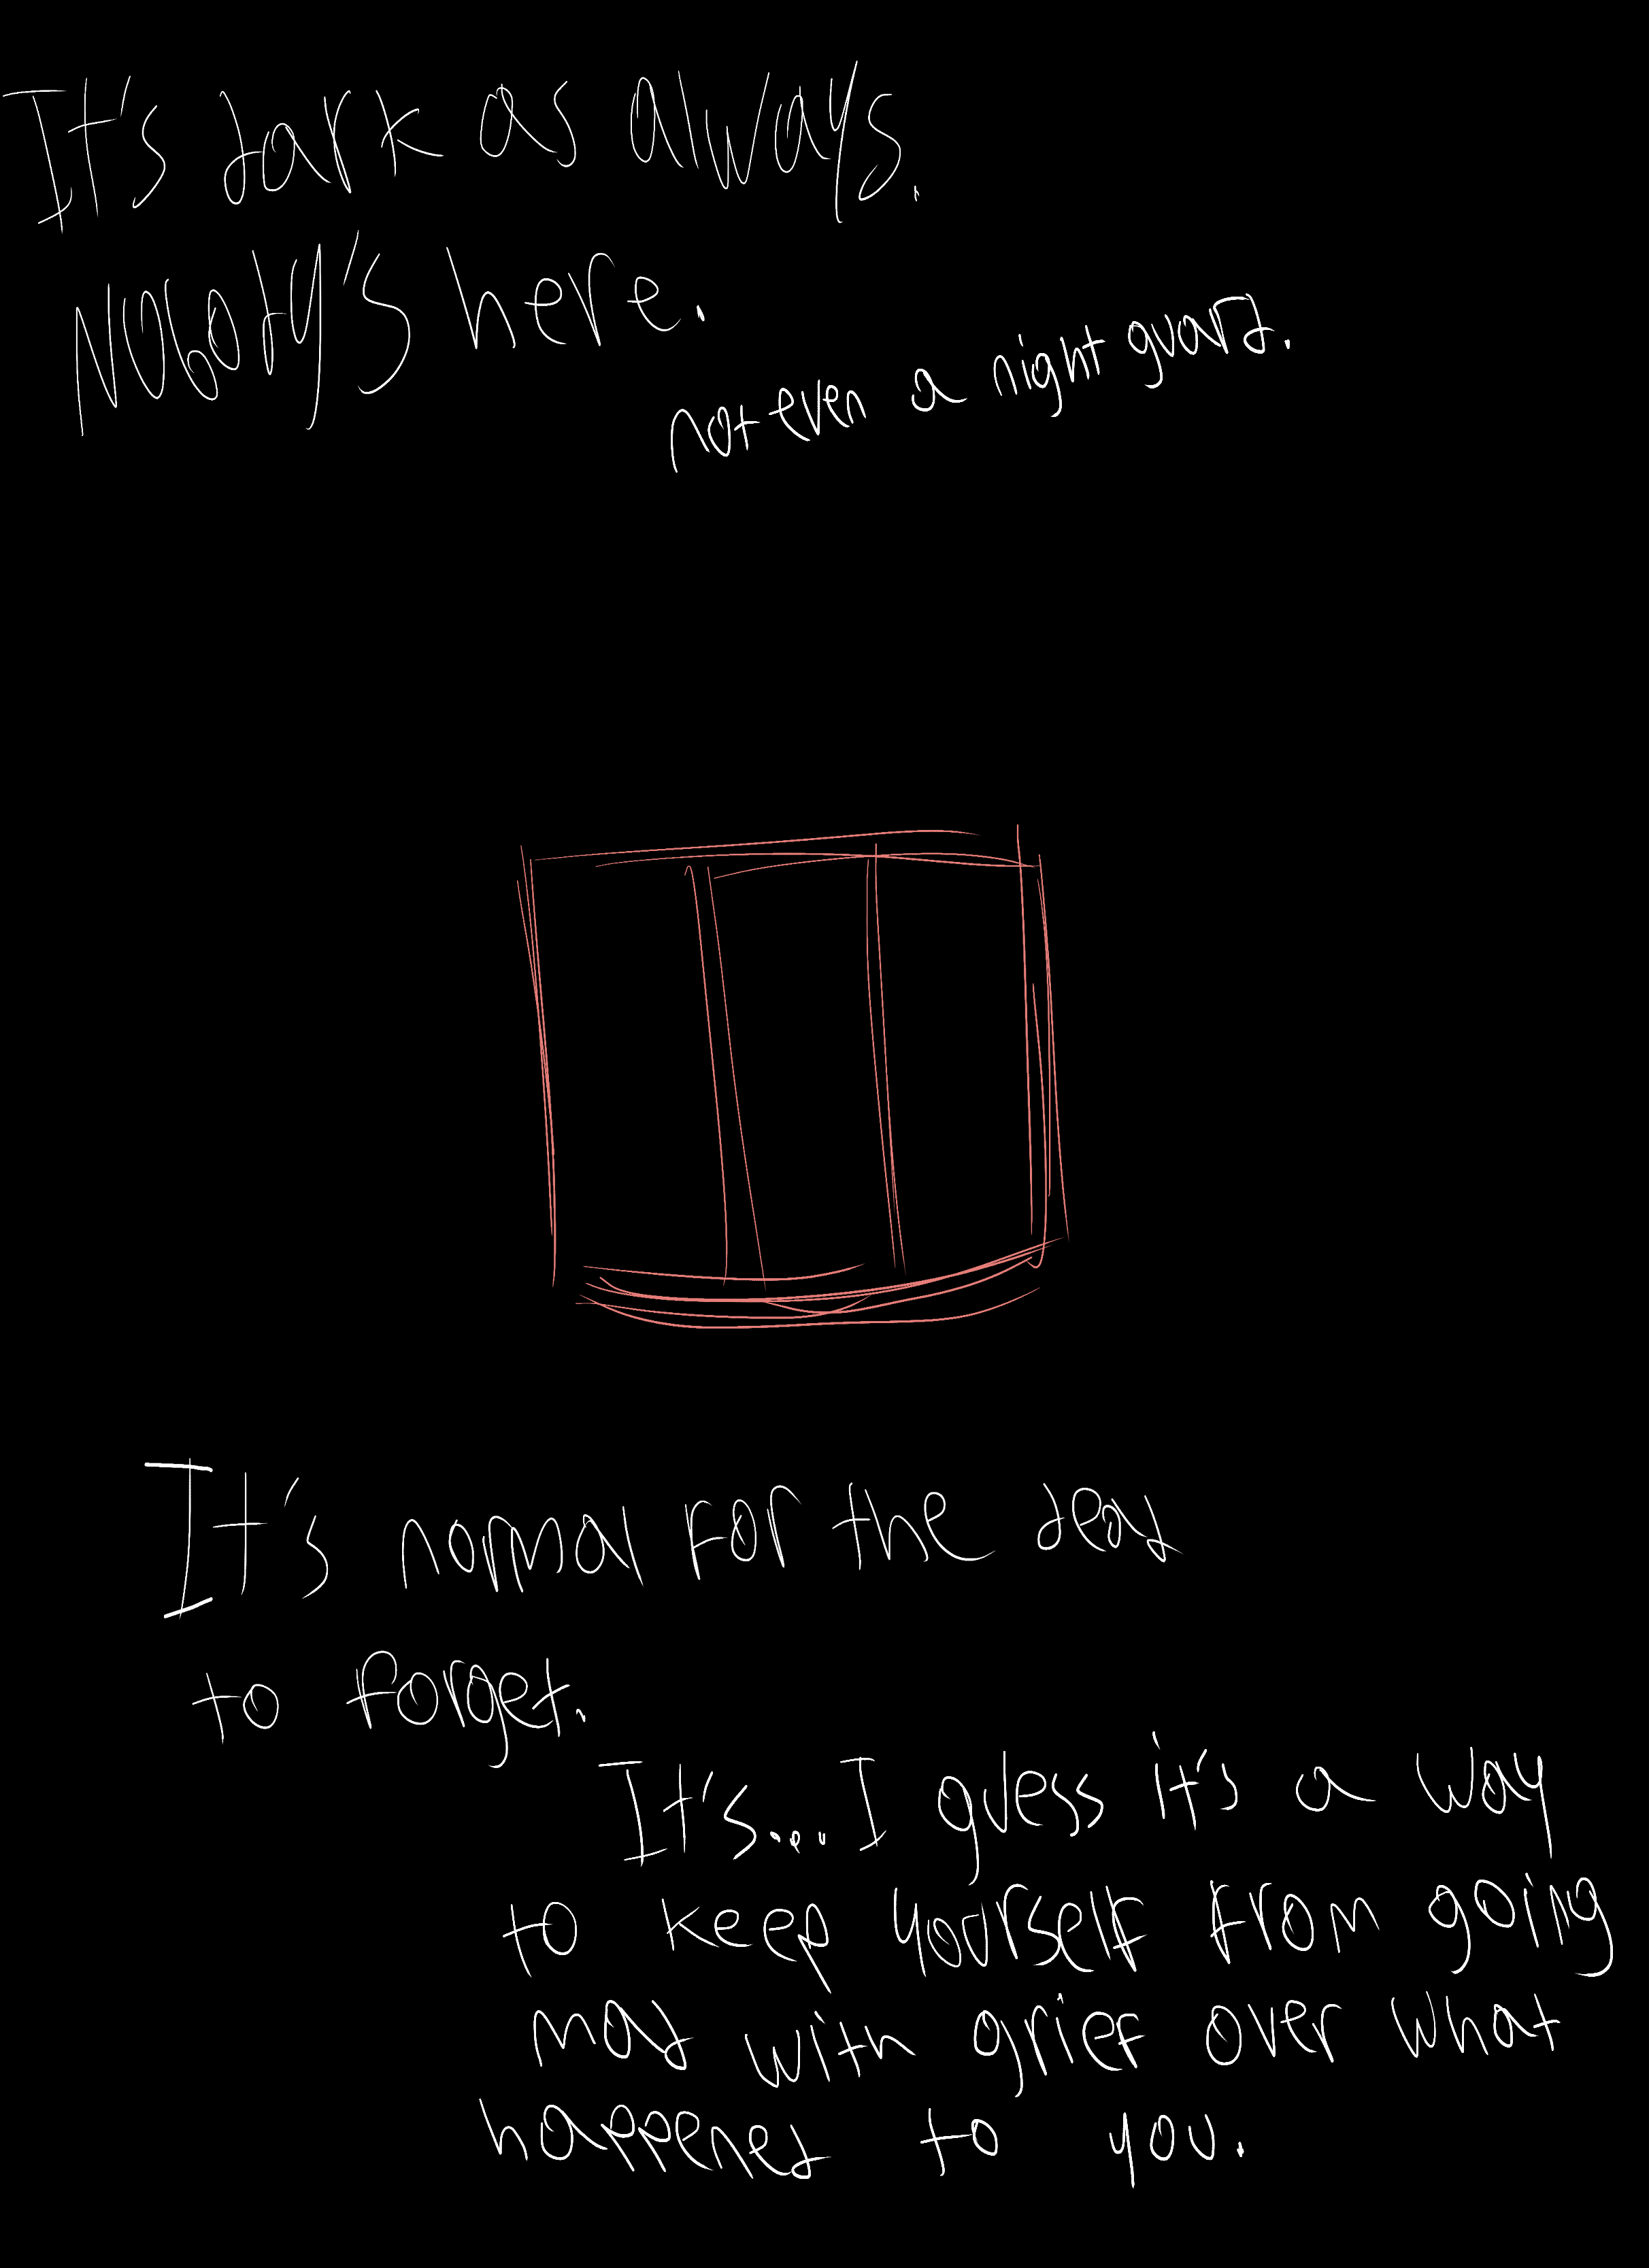 It's dark as always.
Nobody's here.
not even a night guard.
It's normal for the dead
to forget.
It's... I guess it's a way
to keep yourself from going
mad with grief over what
happened to you.